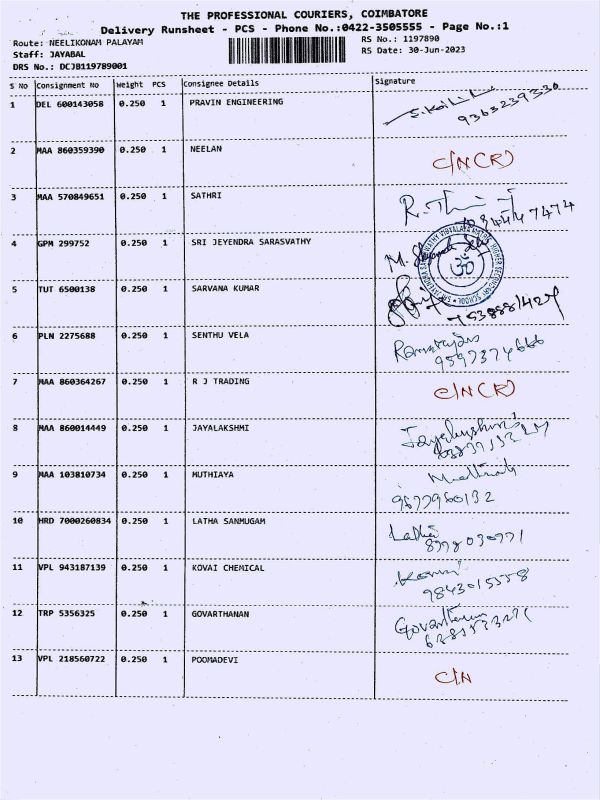 THE PROFESSIONAL COURIERS, COIMBATORE
Delivery Runsheet - PCS - Phone No.:0422-3505555 - Page No.:1
Route: NEELIKONAM PALAYAM RS No.: 1197890
Staff: JAYABAL RS Date: 30-Jun-2023
DRS No.: DCJB119789001
S No Consignment No Weight PCS Consignee Details Signature
1 DEL 600143058 0.250 1 PRAVIN ENGINEERING
9363239330
2 MAA 860359390 0.250 1 NEELAN C/N(R)
3 MAA 570849651 0.250 1 SATHRI
4 GPM 299752 0.250 1 SRI JEYENDRA SARASVATHY
5 TUT 6500138 0.250 1 SARVANA KUMAR
6 PLN 2275688 0.250 1 SENTHU VELA
9597374666
7 MAA 860364267 0.250 1 R J TRADING C/N(R)
8 MAA 860014449 0.250 1 JAYALAKSHMI
9 MAA 103810734 0.250 1 MUTHIAYA
10 HRD 7000260834 0.250 1 LATHA SANMUGAM Latha
11 VPL 943187139 0.250 1 KOVAI CHEMICAL
9843015558
12 TRP 5356325 0.250 1 GOVARTHANAN
13 VPL 218560722 0.250 1 POOMADEVI C/N